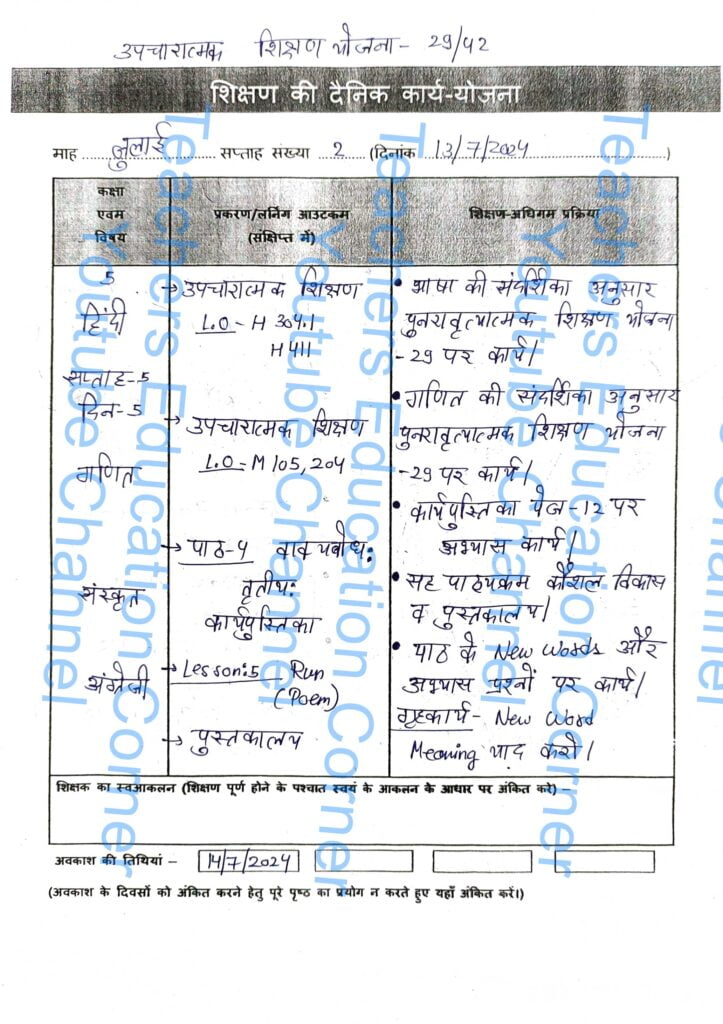 उपचारात्मक शिक्षण योजना- 29/42
शिक्षण की दैनिक कार्य-योजना
माह जुलाई सप्ताह संख्या 2 (दिनांक 13/7/2024)
कक्षा
एवम
विषय
प्रकरण/लर्निंग आउटकम
(संक्षिप्त में)
शिक्षण-अधिगम प्रक्रिया
5
हिंदी
सप्ताह-5
दिन-5
गणित
संस्कृत
अंग्रेजी
→ उपचारात्मक शिक्षण
L.O- H 304.1
H 411
→ उपचारात्मक शिक्षण
L.O- M 105, 204
→ पाठ-4 वाक्यबोध:
तृतीय:
कार्यपुस्तिका
→ Lesson:5 Run
(Poem)
→ पुस्तकालय
• भाषा की संदर्शिका अनुसार
पुनरावृत्यात्मक शिक्षण योजना
-29 पर कार्य।
• गणित की संदर्शिका अनुसार
पुनरावृत्यात्मक शिक्षण योजना
-29 पर कार्य।
• कार्यपुस्तिका पेज-12 पर
अभ्यास कार्य।
• सह पाठ्यक्रम कौशल विकास
व पुस्तकालय।
• पाठ के New Words और
अभ्यास प्रश्नों पर कार्य।
गृहकार्य- New Word
Meaning याद करो।
शिक्षक का स्वआकलन (शिक्षण पूर्ण होने के पश्चात स्वयं के आकलन के आधार पर अंकित करे) –
अवकाश की तिथियां – 14/7/2024
(अवकाश के दिवसों को अंकित करने हेतु पूरे पृष्ठ का प्रयोग न करते हुए यहाँ अंकित करें।)
Teachers Education Corner
Youtube Channel
Teachers Education Corner
Youtube Channel
Teachers Education Corner
Youtube Channel